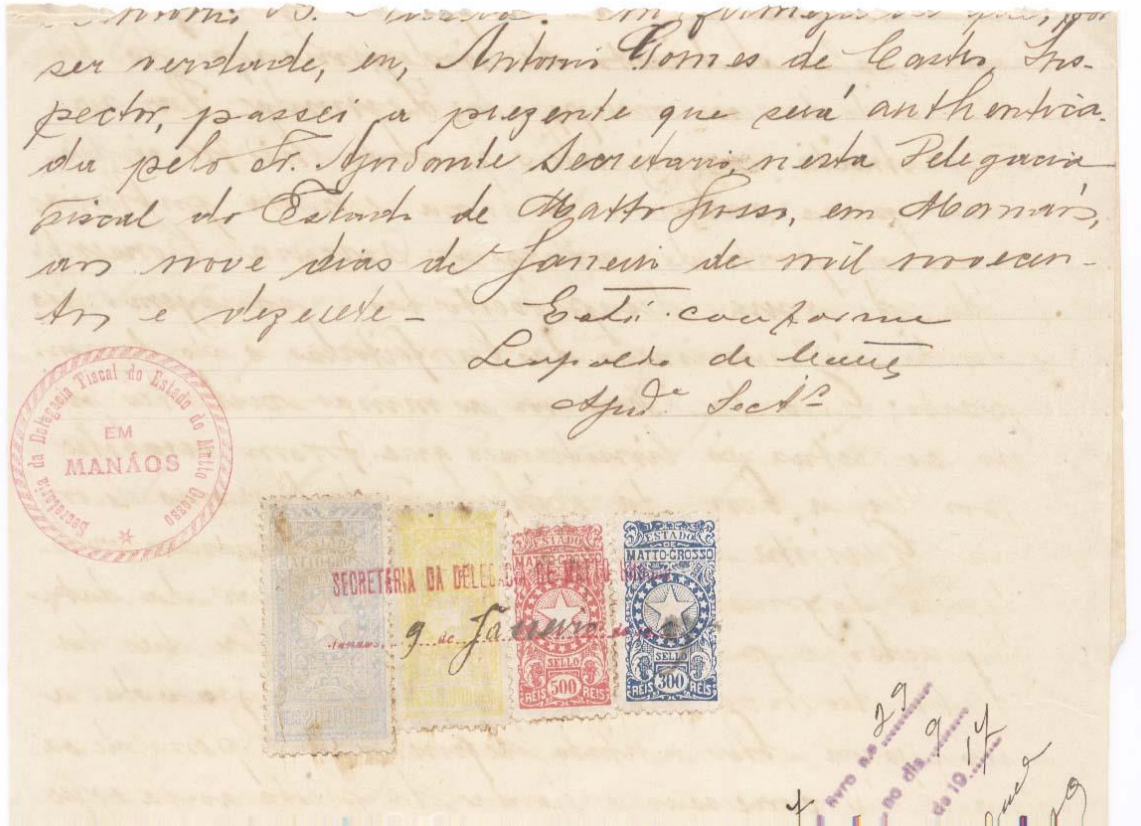 ser verdade, eu, Antonio Gomes de Castro, Ins-
pector, passei a prezente que será authentica-
da pelo Sr. Ajudante Secretario, nesta Delegacia
Fiscal do Estado de Matto Grosso, em Manáos,
aos nove dias de Janeiro de mil novecen-
tos e dezesete-
Está conforme
Leopoldo de
Ajude Sectº
Secretaria da Delegacia Fiscal do Estado de Matto Grosso
EM
MANÁOS
SECRETARIA DA DELEGACIA DE MATTO
Manáos, 9 de Janeiro de
MATTO
ESTADO
DE
MATTO-GROSSO
SELLO
REIS 500 REIS
ESTADO
DE
MATTO-GROSSO
SELLO
REIS 300 REIS
livro n.o 29
no dia 9
de 19 17